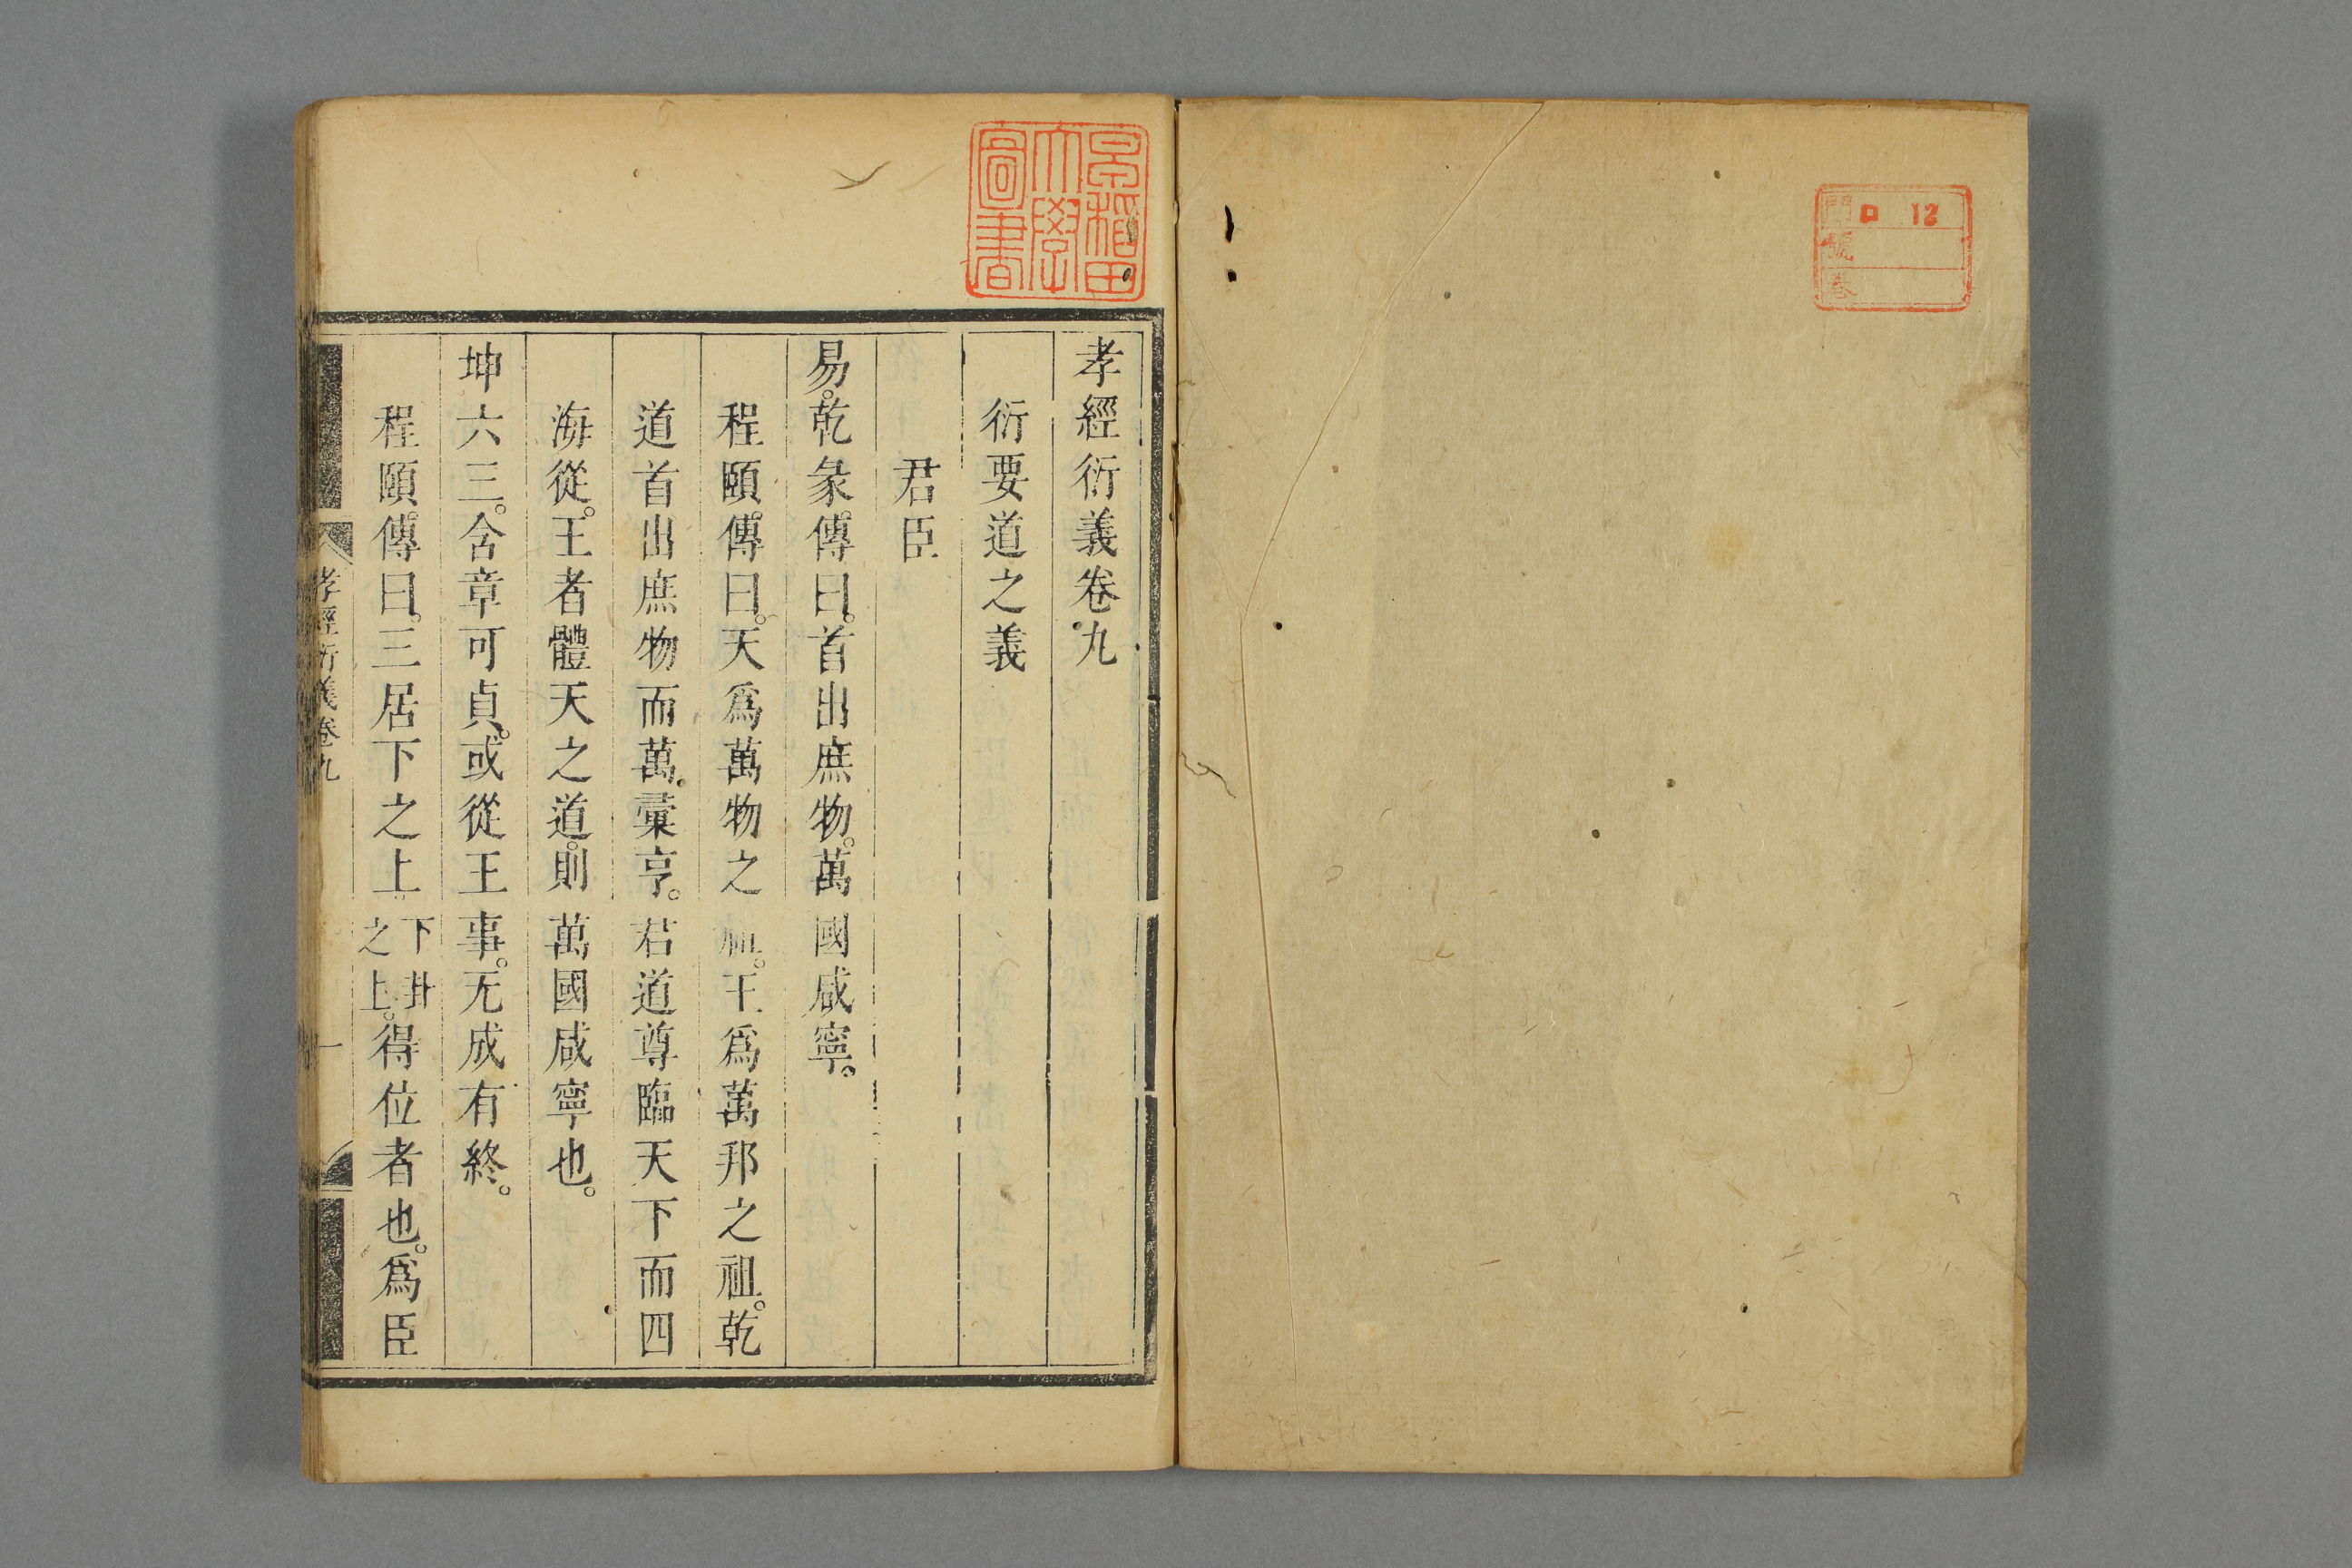 門 ロ 12
號
卷
早稲田大學圖書
孝經衍義卷九
衍要道之義
君臣
易。乾彖傳曰。首出庶物。萬國咸寧。
程頤傳曰。天爲萬物之祖。王爲萬邦之祖。乾
道首出庶物而萬彙亨。君道尊臨天下而四
海從。王者體天之道。則萬國咸寧也。
坤六三。含章可貞。或從王事。无成有終。
程頤傳曰。三居下之上。下卦之上。得位者也。爲臣
孝經衍義卷九 一